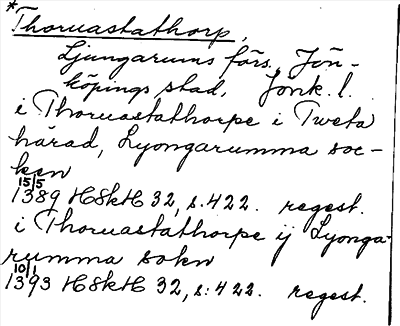 *Thoruastathorp,
Ljungarums förs. Jön-
köpings stad, Jönk. l.
i Thoruastathorpe i Tweta
härad, Lyongarumma soc-
ken
15/5
1389 HSkH 32, s. 422. regest.
i Thoruastathorpe ij Lyonga-
rumma sokn
10/1
1393 HSkH 32, s: 422. regest.